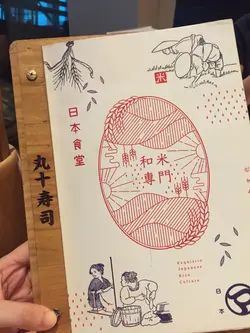 米
日本食堂
丸十寿司
和米
專門
Exquisite
Japanese
Rice
Culture
日本